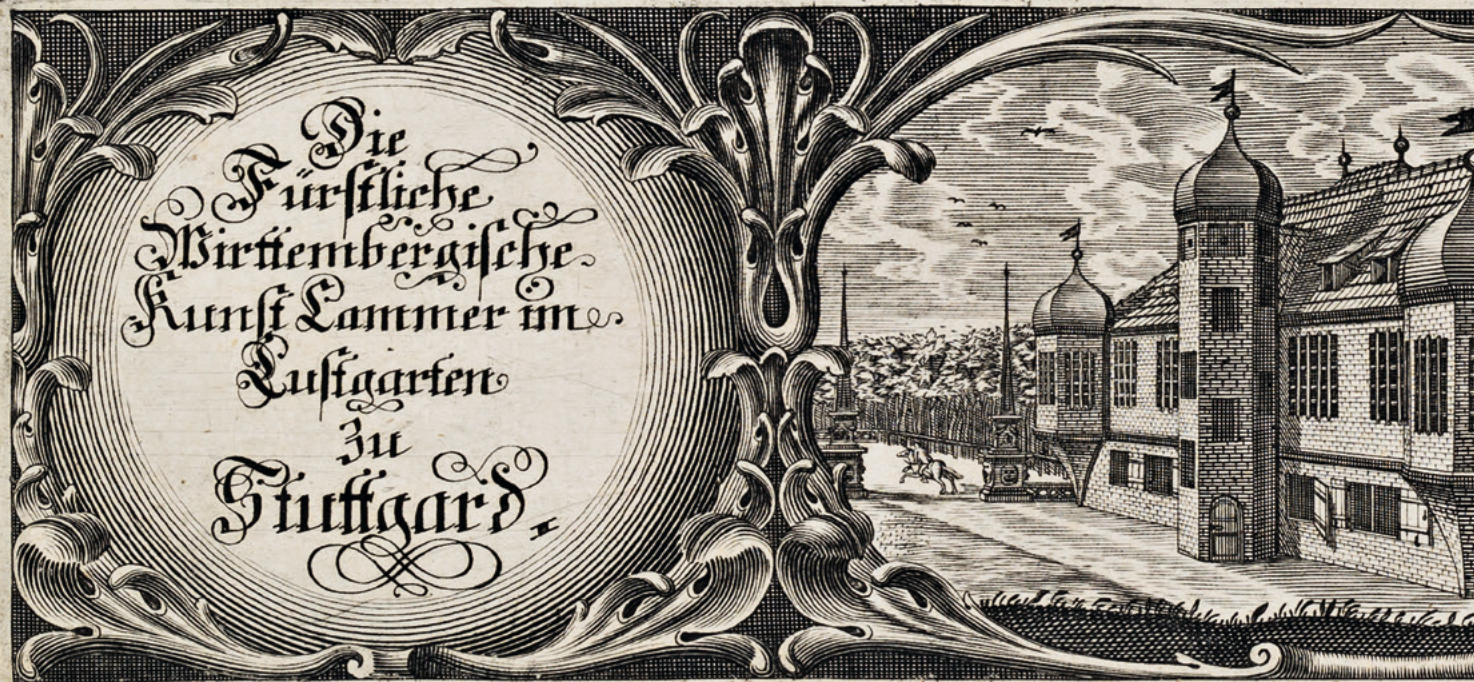 Die
Fürstliche
Wirttembergische
Kunst Cammer im
Lustgarten
zu
Stuttgard.